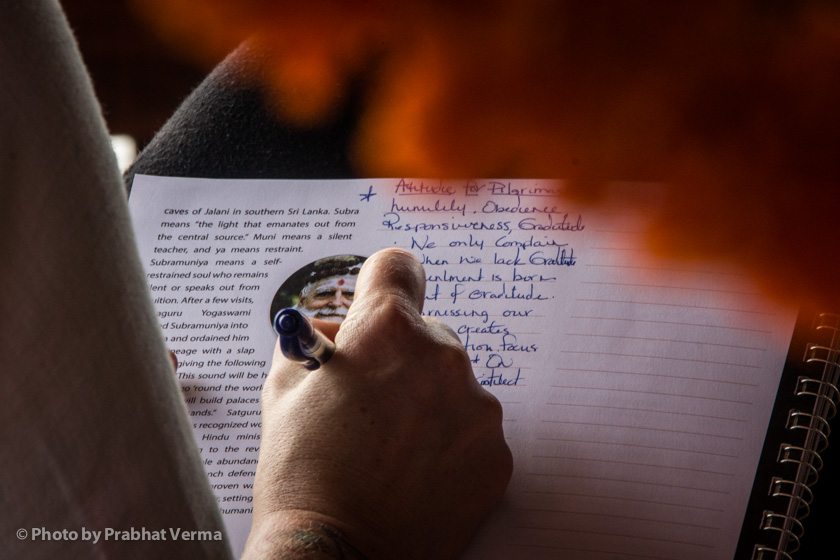 caves of Jalani in southern Sri Lanka. Subra
means "the light that emanates out from
the central source." Muni means a silent
teacher, and ya means restraint.
Subramuniya means a self-
restrained soul who remains
lent or speaks out from
uition. After a few visits,
aguru Yogaswami
d Subramuniya into
a and ordained him
eage with a slap
giving the following
"This sound will be h
o 'round the world
ill build palaces
ands." Satguru
s recognized wo
Hindu minis
to the rev
le abundan
nch defend
roven wa
, setting
humani
* Attitude for Pilgrima
humility. Obedience
Responsiveness, Gratitude
. We only Complain
hen we lack Gratitude
entment is born
t of Gratitude.
rnissing our
creates
tion, focus
On
© Photo by Prabhat Verma